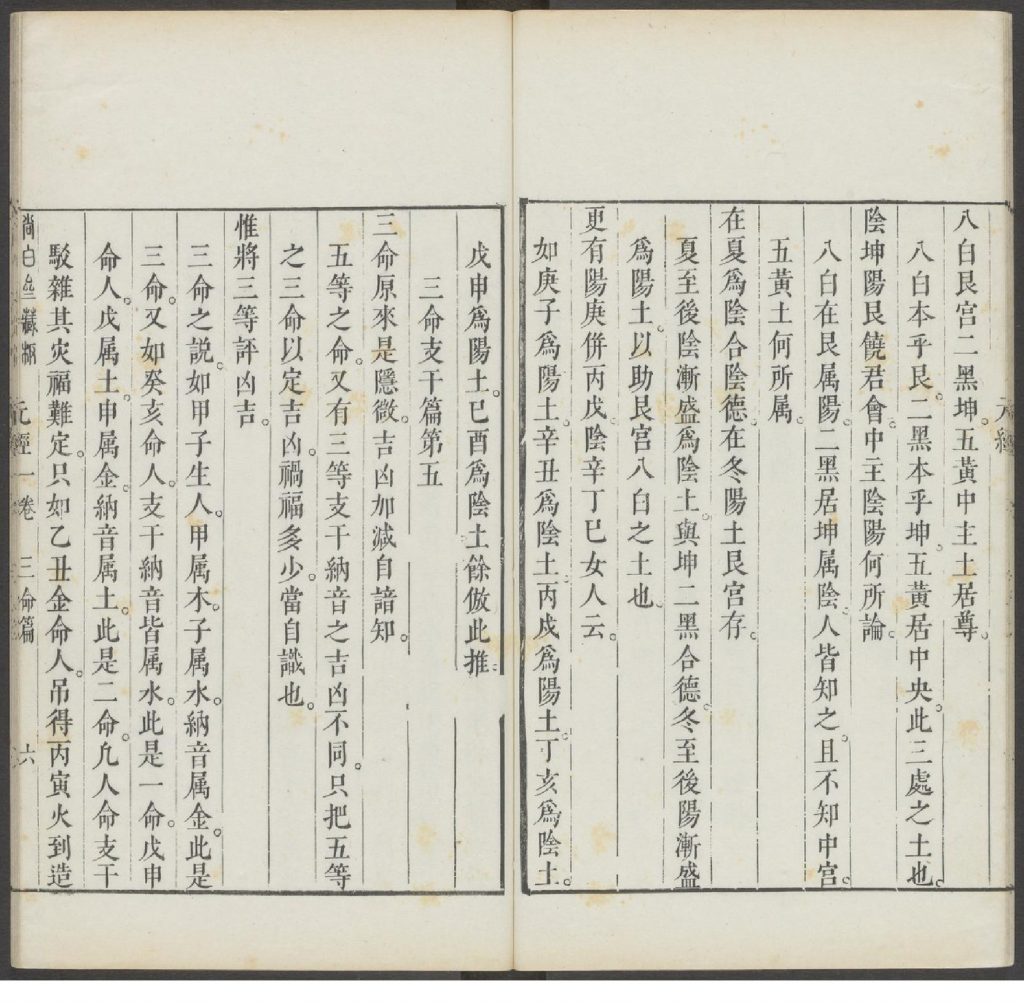 八白艮宮二黑坤。五黃中主土居尊。
八白本乎艮。二黑本乎坤。五黃居中央。此三處之土也。
陰坤陽艮饒君會。中主陰陽何所論。
八白在艮属陽。二黑居坤属陰。人皆知之。且不知中宮。
五黃土何所属。
在夏爲陰合陰德。在冬陽土艮宮存。
夏至後陰漸盛爲陰土。與坤二黑合德。冬至後陽漸盛
爲陽土。以助艮宮八白之土也。
更有陽庚併丙戊。陰辛丁巳女人云。
如庚子爲陽土。辛丑爲陰土。丙戌爲陽土。丁亥爲陰土。
戊申爲陽土。巳酉爲陰土。餘倣此推。
三命支干篇第五
三命原來是隱微。吉凶加減自諳知。
五等之命。又有三等支干納音之吉凶不同。只把五等
之三命以定吉凶。禍福多少。當自識也。
惟將三等評凶吉。
三命之說。如甲子生人。甲属木。子属水。納音属金。此是
三命。又如癸亥命人。支干納音皆属水。此是一命。戊申
命人。戊属土。申属金。納音属土。此是二命。凢人命支干
駁雜其灾福難定。只如乙丑金命人。吊得丙寅火到造
尚白齋藏板 元經一卷 三命篇 六